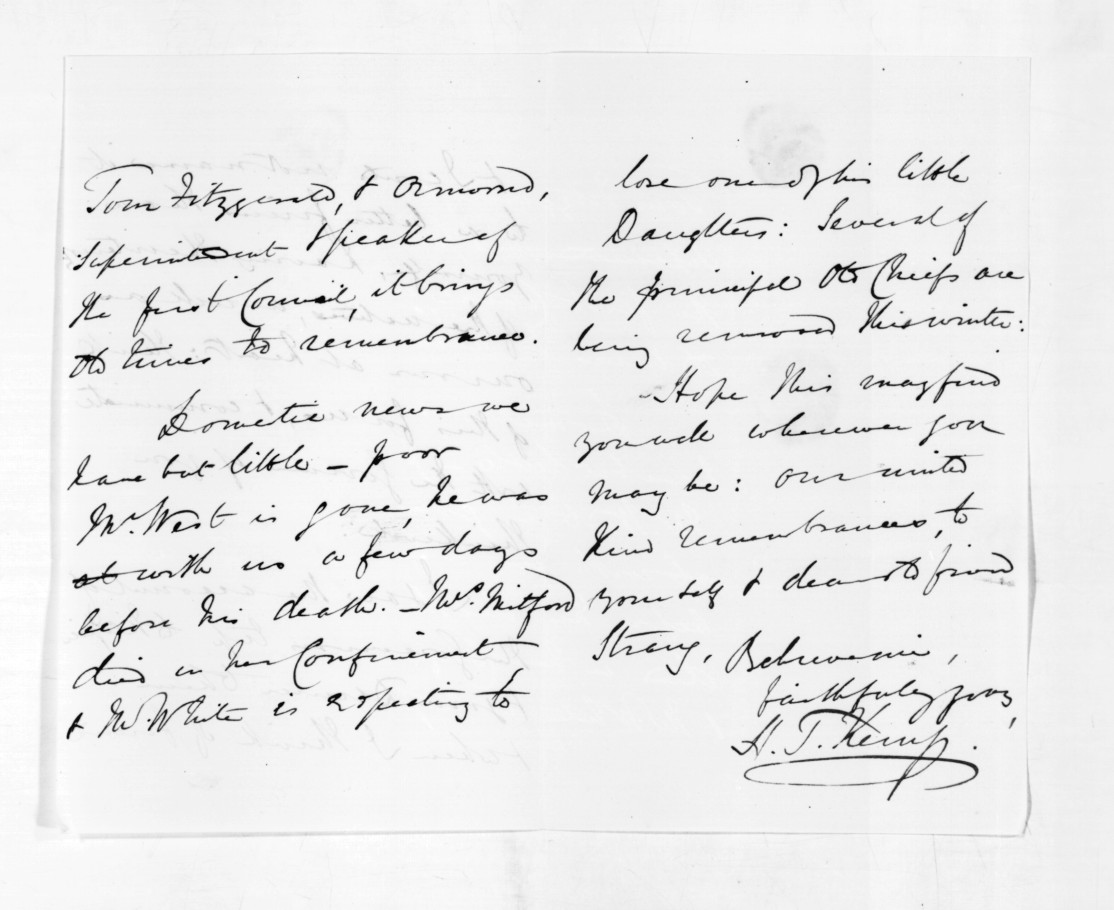 Tom Fitzgerald, & Ormond,
Superintendent & Speaker of
the first Council, it brings
old times to remembrance.
Domestic news we
have but little – poor
Mr. West is gone, he was
with us a few days
before his death. – Mrs. Mitford
died in her Confinement,
& Mr. White is expecting to
lose one of his little
Daughters: Several of
the principal Old Chiefs are
being removed this winter:
– Hope this may find
you well wherever you
may be: our united
Kind remembrances, to
yourself & dear old friend
Strang, Believe me,
faithfully yours,
H. T. Kemp.